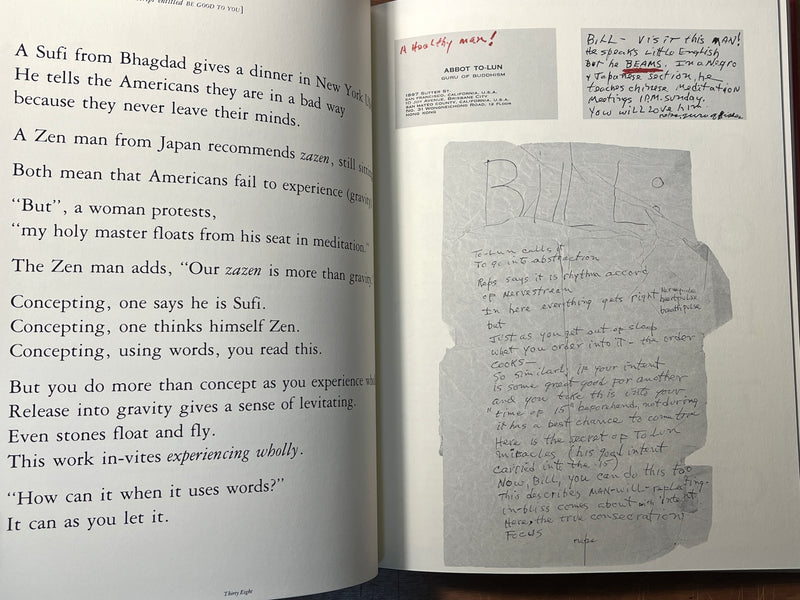 script entitled BE GOOD TO YOU]
A Sufi from Bhagdad gives a dinner in New York
He tells the Americans they are in a bad way
because they never leave their minds.
A Zen man from Japan recommends zazen, still
Both mean that Americans fail to experience (gravity
"But", a woman protests,
"my holy master floats from his seat in meditation."
The Zen man adds, "Our zazen is more than gravity
Concepting, one says he is Sufi.
Concepting, one thinks himself Zen.
Concepting, using words, you read this.
But you do more than concept as you experience
Release into gravity gives a sense of levitating.
Even stones float and fly.
This work in-vites experiencing wholly.
"How can it when it uses words?"
It can as you let it.
Thirty Eight
A Healthy man!
ABBOT TO-LUN
GURU OF BUDDHISM
1897 SUTTER ST.
SAN FRANCISCO, CALIFORNIA, U.S.A.
10 JOY AVENUE, BRISBANE CITY
SAN MATEO COUNTY, CALIFORNIA, U.S.A.
NO. 31 WONGNEICHONG ROAD, 12 FLOOR
HONG KONG
BILL - VISIT this MAN!
He speaks Little English
But he BEAMS. In a Negro
& Japanese section, he
teaches chinese meditation
Meetings 1 P.M. Sunday.
You will Love him
BILL:
To-Lun calls it
To go into abstraction
Reps says it is rhythm accord
of nervestream
In here everything gets right
heartpulse
breathpulse
but
Just as you get out of sleep
what you order into it - the order
COOKS—
So similarly if your intent
is some great good for another
and you take this into your
"time of 15" beforehand, not during
it has a best chance to come true
Here is the secret of To-Lun
miracles (his good intent
carried into the 15)
Now, Bill, you can do this too
This describes MAN-will-
in-bliss comes about intent
Here, the true consecration
Focus